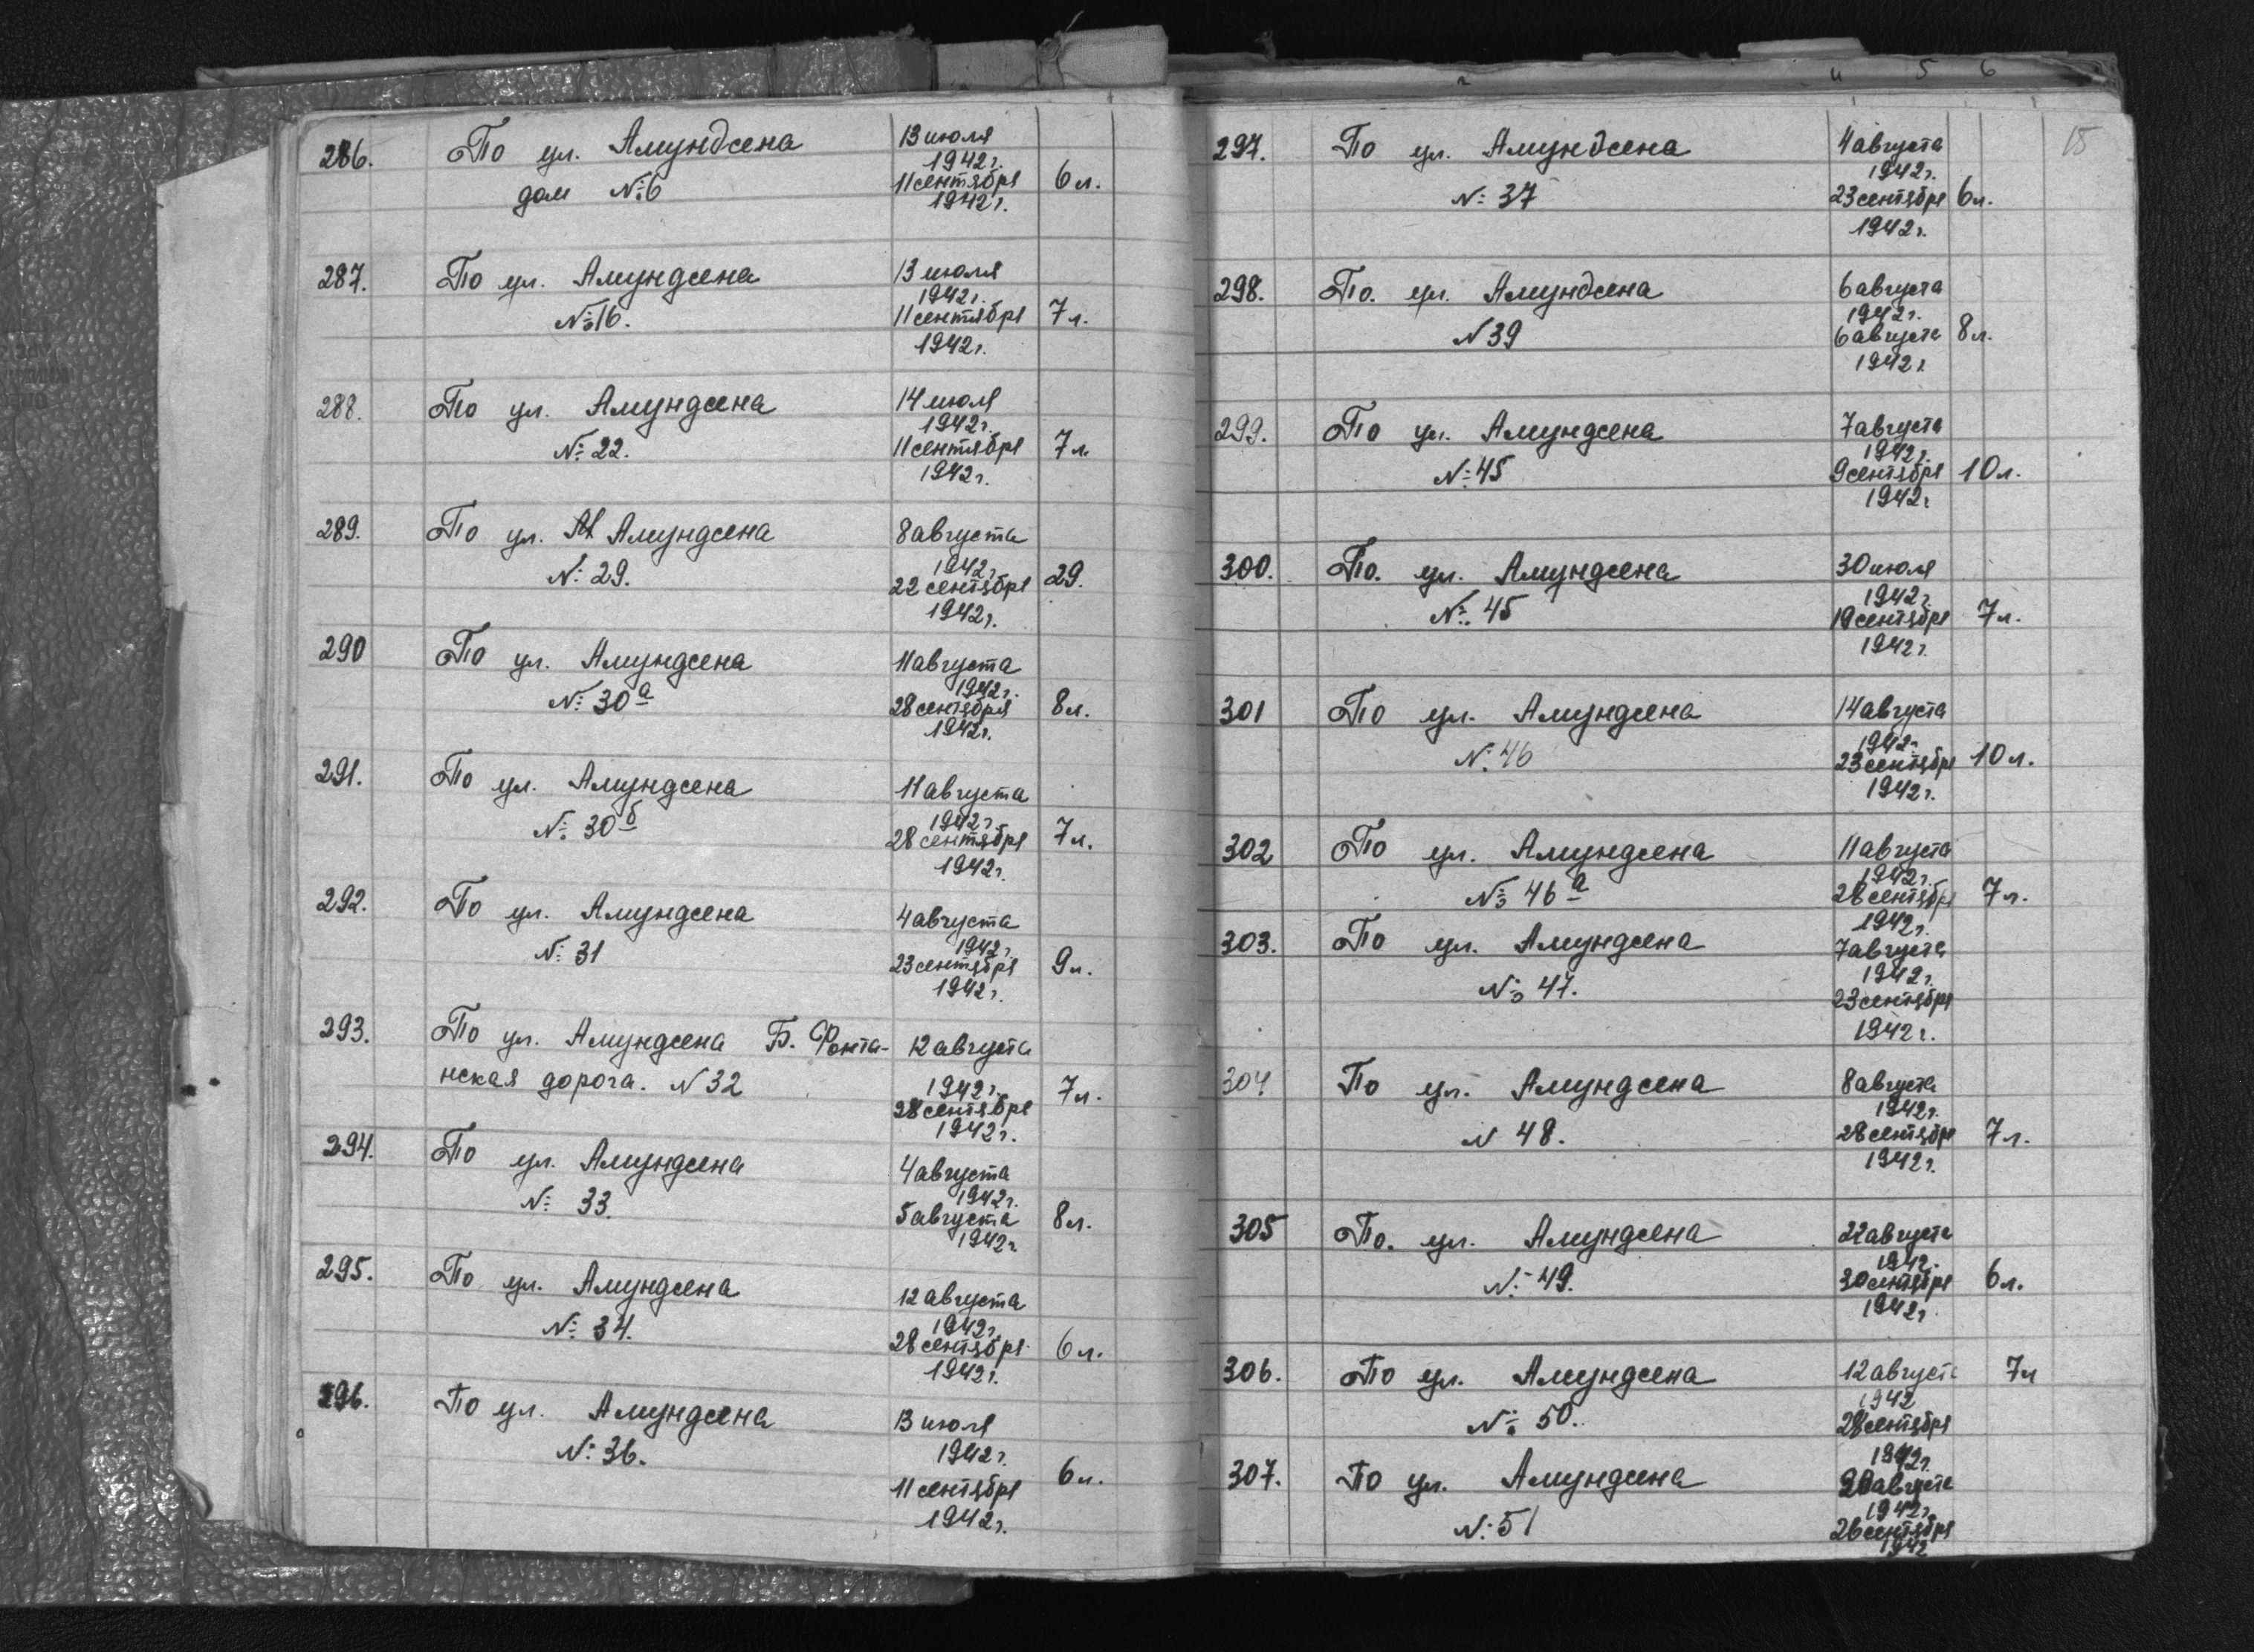 286. По ул. Амундсена 13 июля
1942 г.
дом № 6 11 сентября 6 л.
1942 г.
287. По ул. Амундсена 13 июля
1942 г.
№ 16. 11 сентября 7 л.
1942 г.
288. По ул. Амундсена 14 июля
1942 г.
№ 22. 11 сентября 7 л.
1942 г.
289. По ул. Амундсена 8 августа
1942 г.
№ 29. 22 сентября 29.
1942 г.
290 По ул. Амундсена 11 августа
1942 г.
№ 30 а 28 сентября 8 л.
1942 г.
291. По ул. Амундсена 11 августа
1942 г.
№ 30 б 28 сентября 7 л.
1942 г.
292. По ул. Амундсена 4 августа
1942 г.
№ 31 23 сентября 9 л.
1942 г.
293. По ул. Амундсена Б. Фонта- 12 августа
нская дорога. N 32 1942 г. 7 л.
28 сентября
1942 г.
294. По ул. Амундсена 4 августа
1942 г.
№ 33. 5 августа 8 л.
1942 г.
295. По ул. Амундсена 12 августа
1942 г.
№ 34. 28 сентября 6 л.
1942 г.
296. По ул. Амундсена 13 июля
№ 36. 1942 г.
11 сентября 6 л.
1942 г.
4 5 6
15
297. По ул. Амундсена 4 августа
1942 г.
№ 37 23 сентября 6 л.
1942 г.
298. По. ул. Амундсена 6 августа
1942 г.
N 39 6 августа 8 л.
1942 г.
299. По ул. Амундсена 7 августа
1942 г.
№ 45 9 сентября 10 л.
1942 г
300. По. ул. Амундсена 30 июля
1942 г.
№ 45 19 сентября 7 л.
1942 г.
301 По ул. Амундсена 14 августа
1942 г.
№ 46 23 сентябр 10 л.
1942 г.
302 По ул. Амундсена 11 августа
1942 г.
№ 46 а 28 сентябр 7 л.
1942 г.
303. По ул. Амундсена 7 августа
1942 г.
№ 47. 23 сентября
1942 г.
304 По ул. Амундсена 8 августа
1942 г.
N 48. 28 сентябр 7 л.
1942 г.
305 По. ул. Амундсена 22 августа
1942.
№ 49. 30 сентября 6 л.
1942 г
306. По ул. Амундсена 12 август 7 л
1942
№ 50. 28 сентября
1942 г.
307. По ул. Амундсена 20 августа
1942 г.
№ 51 26 сентября
1942